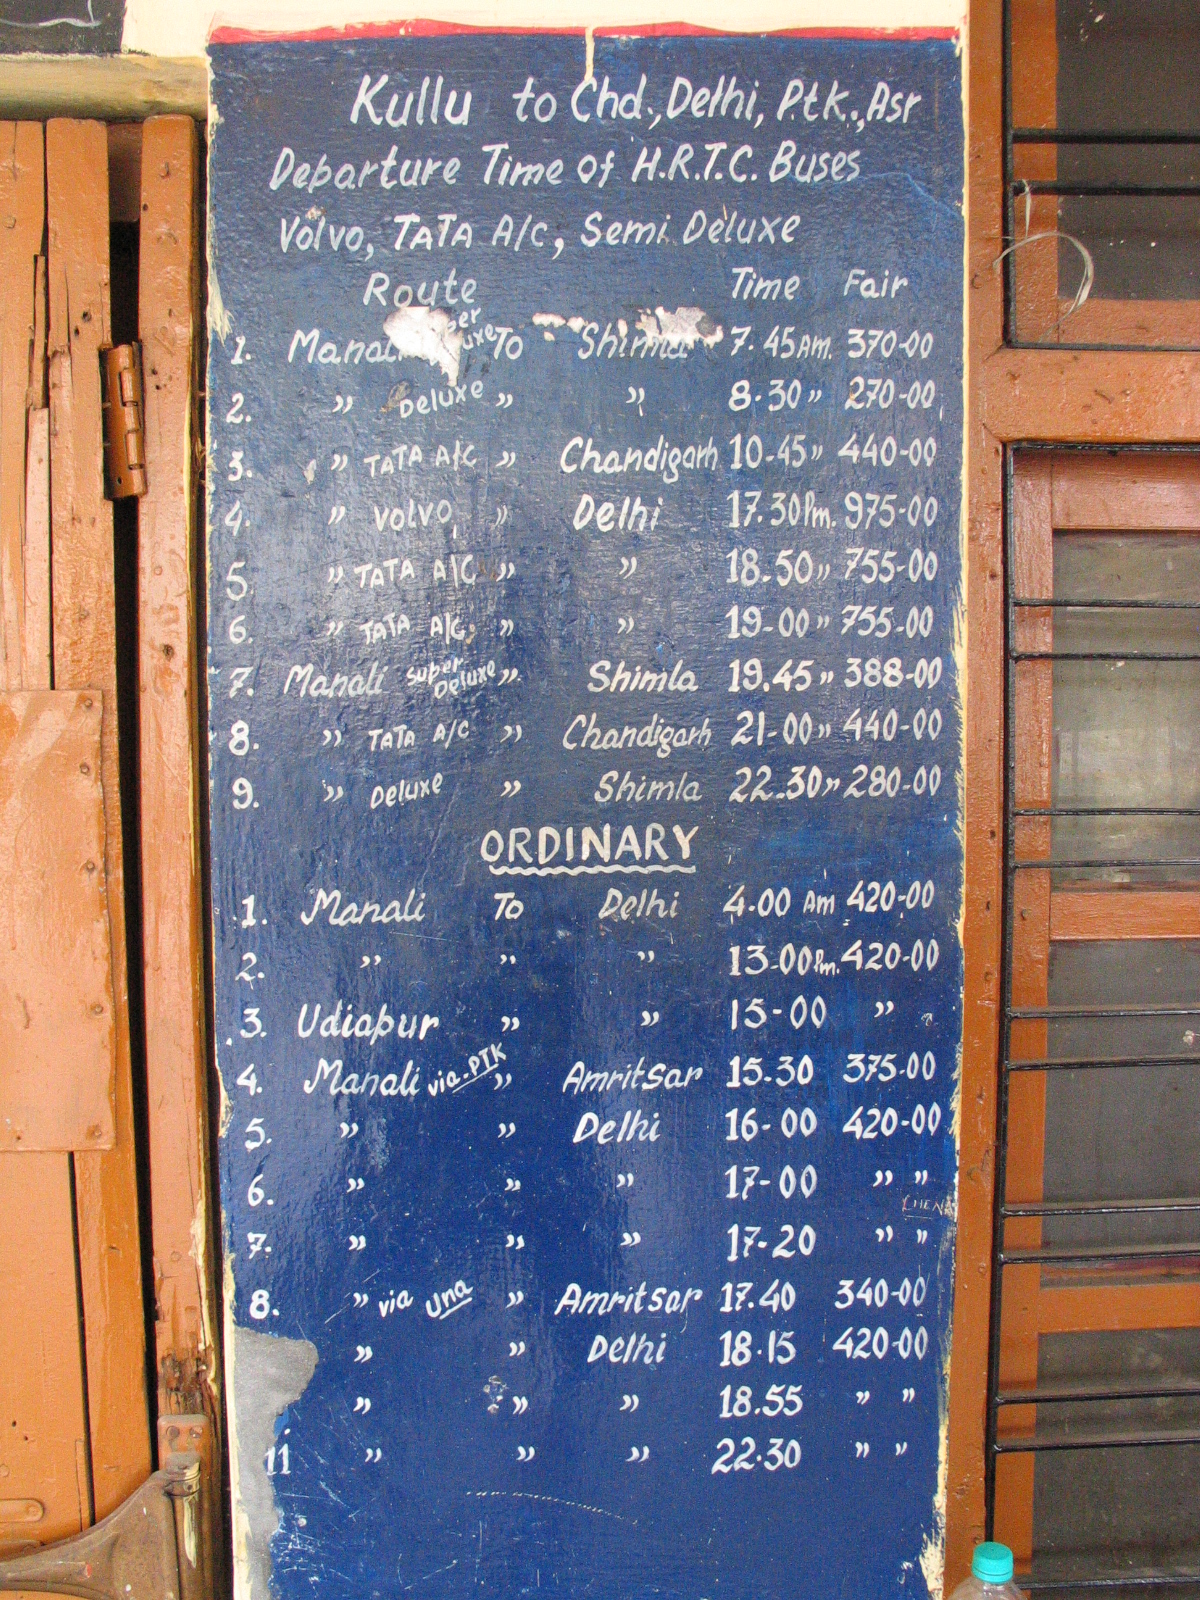 Kullu to Chd., Delhi, P.t.k., Asr
Departure Time of H.R.T.C. Buses
Volvo, TATA A/C, Semi Deluxe
Route Time Fair
1. Manali To Shimla 7.45 Am. 370-00
2. " Deluxe " " 8.30 " 270-00
3. " TATA A/C " Chandigarh 10-45 " 440-00
4. " Volvo " Delhi 17.30 Pm. 975-00
5. " TATA A/C " " 18.50 " 755-00
6. " TATA A/C " " 19-00 " 755-00
7. Manali Super Deluxe " Shimla 19.45 " 388-00
8. " TATA A/C " Chandigarh 21-00 " 440-00
9. " Deluxe " Shimla 22.30 " 280-00
ORDINARY
1. Manali To Delhi 4.00 Am 420-00
2. " " " 13-00 Pm. 420-00
3. Udiapur " " 15-00 "
4. Manali via-PTK " Amritsar 15.30 375-00
5. " " Delhi 16-00 420-00
6. " " " 17-00 " "
7. " " " 17-20 " "
8. " via Una " Amritsar 17.40 340-00
" " Delhi 18.15 420-00
" " " 18.55 " "
11 " " " 22.30 " "